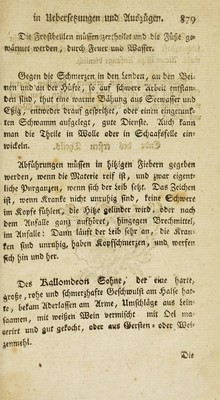 in Uebersetzungen und Auszügen. 879
Die Frostbeilen müssen zertheilet und die Füße ge-
wärmet werden, durch Feuer und Wasser.
Gegen die Schmerzen in den Lenden, an den Bei-
nen und an der Hüfte, so auf schwere Arbeit entstan-
den sind, thut eine warme Bähung aus Seewasser und
Eßig, entweder darauf gesprützt, oder einen eingetunk-
ten Schwamm aufgelegt, gute Dienste. Auch kann
man die Theile in Wolle oder in Schaafsfelle ein-
wickeln.
Abführungen müssen in hitzigen Fiebern gegeben
werden, wenn die Materie reif ist, und zwar eigent-
liche Purganzen, wenn sich der Leib setzt. Das Zeichen
ist, wenn Kranke nicht unruhig sind, keine Schwere
im Kopfe fühlen, die Hitze gelinder wird, oder nach
dem Anfalle ganz aufhöret, hingegen Brechmittel,
im Anfalle: Dann läuft der Leib sehr an, die Kran-
ken sind unruhig, haben Kopfschmerzen, und werfen
sich hin und her.
Des Kallomdeon Sohne, der eine harte,
große, rohe und schmerzhafte Geschwulst am Halse hat-
te, bekam Aderlassen am Arme, Umschläge aus Lein-
saamen, mit weißen Wein vermischt mit Oel ma-
cerirt und gut gekocht, oder aus Gersten- oder Wei-
zenmehl.
Die